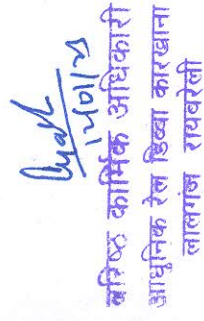 12/01/23
वरिष्ठ कार्मिक अधिकारी
आधुनिक रेल डिब्बा कारखाना
लालगंज रायबरेली